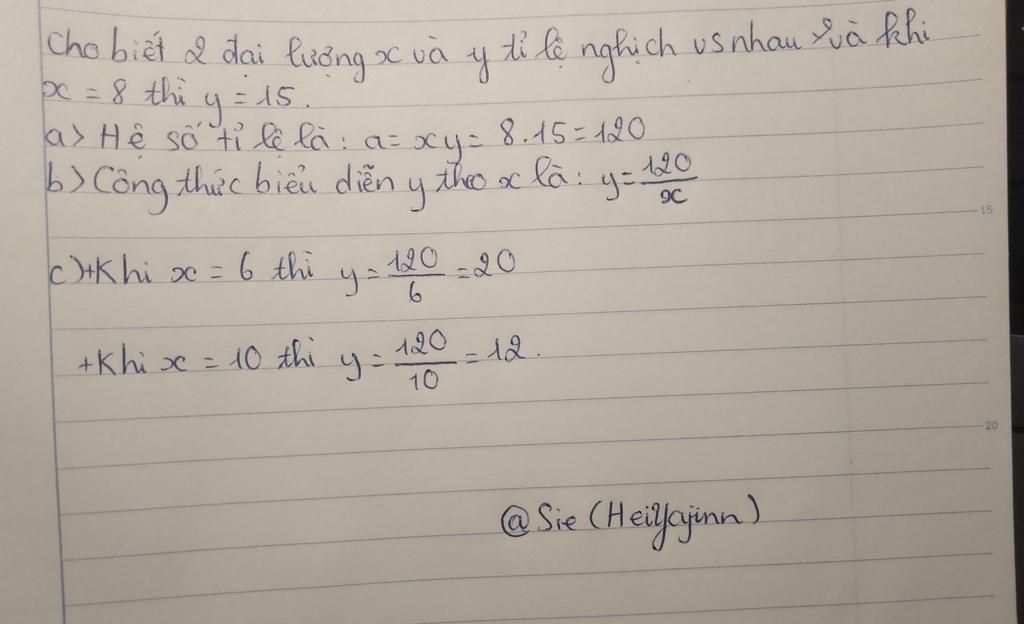 Cho biết 2 đại lượng x và y tỉ lệ nghịch vs nhau và khi
x = 8 thì y = 15.
a> Hệ số tỉ lệ là: a = xy = 8.15 = 120
b> Công thức biểu diễn y theo x là: y = 120/x
15
c) + Khi x = 6 thì y = 120/6 = 20
+ Khi x = 10 thì y = 120/10 = 12.
20
@Sie (HeiYajinn)